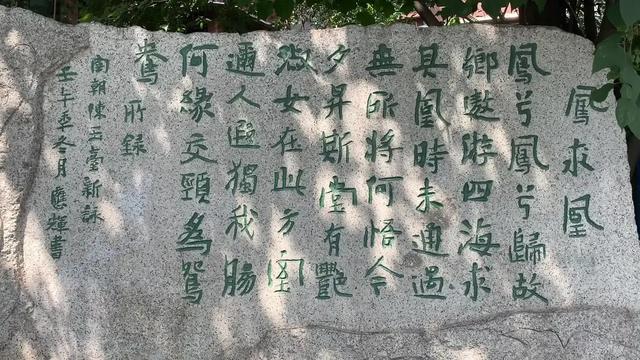 鳳求凰
鳳兮鳳兮歸故
鄉遨游四海求
其凰時未通遇
無所將何悟今
夕昇斯堂有豔
淑女在此方室
邇人遐獨我腸
何緣交頸為鴛
鴦 所錄
南朝陳玉臺新詠
壬午年冬月應輝書